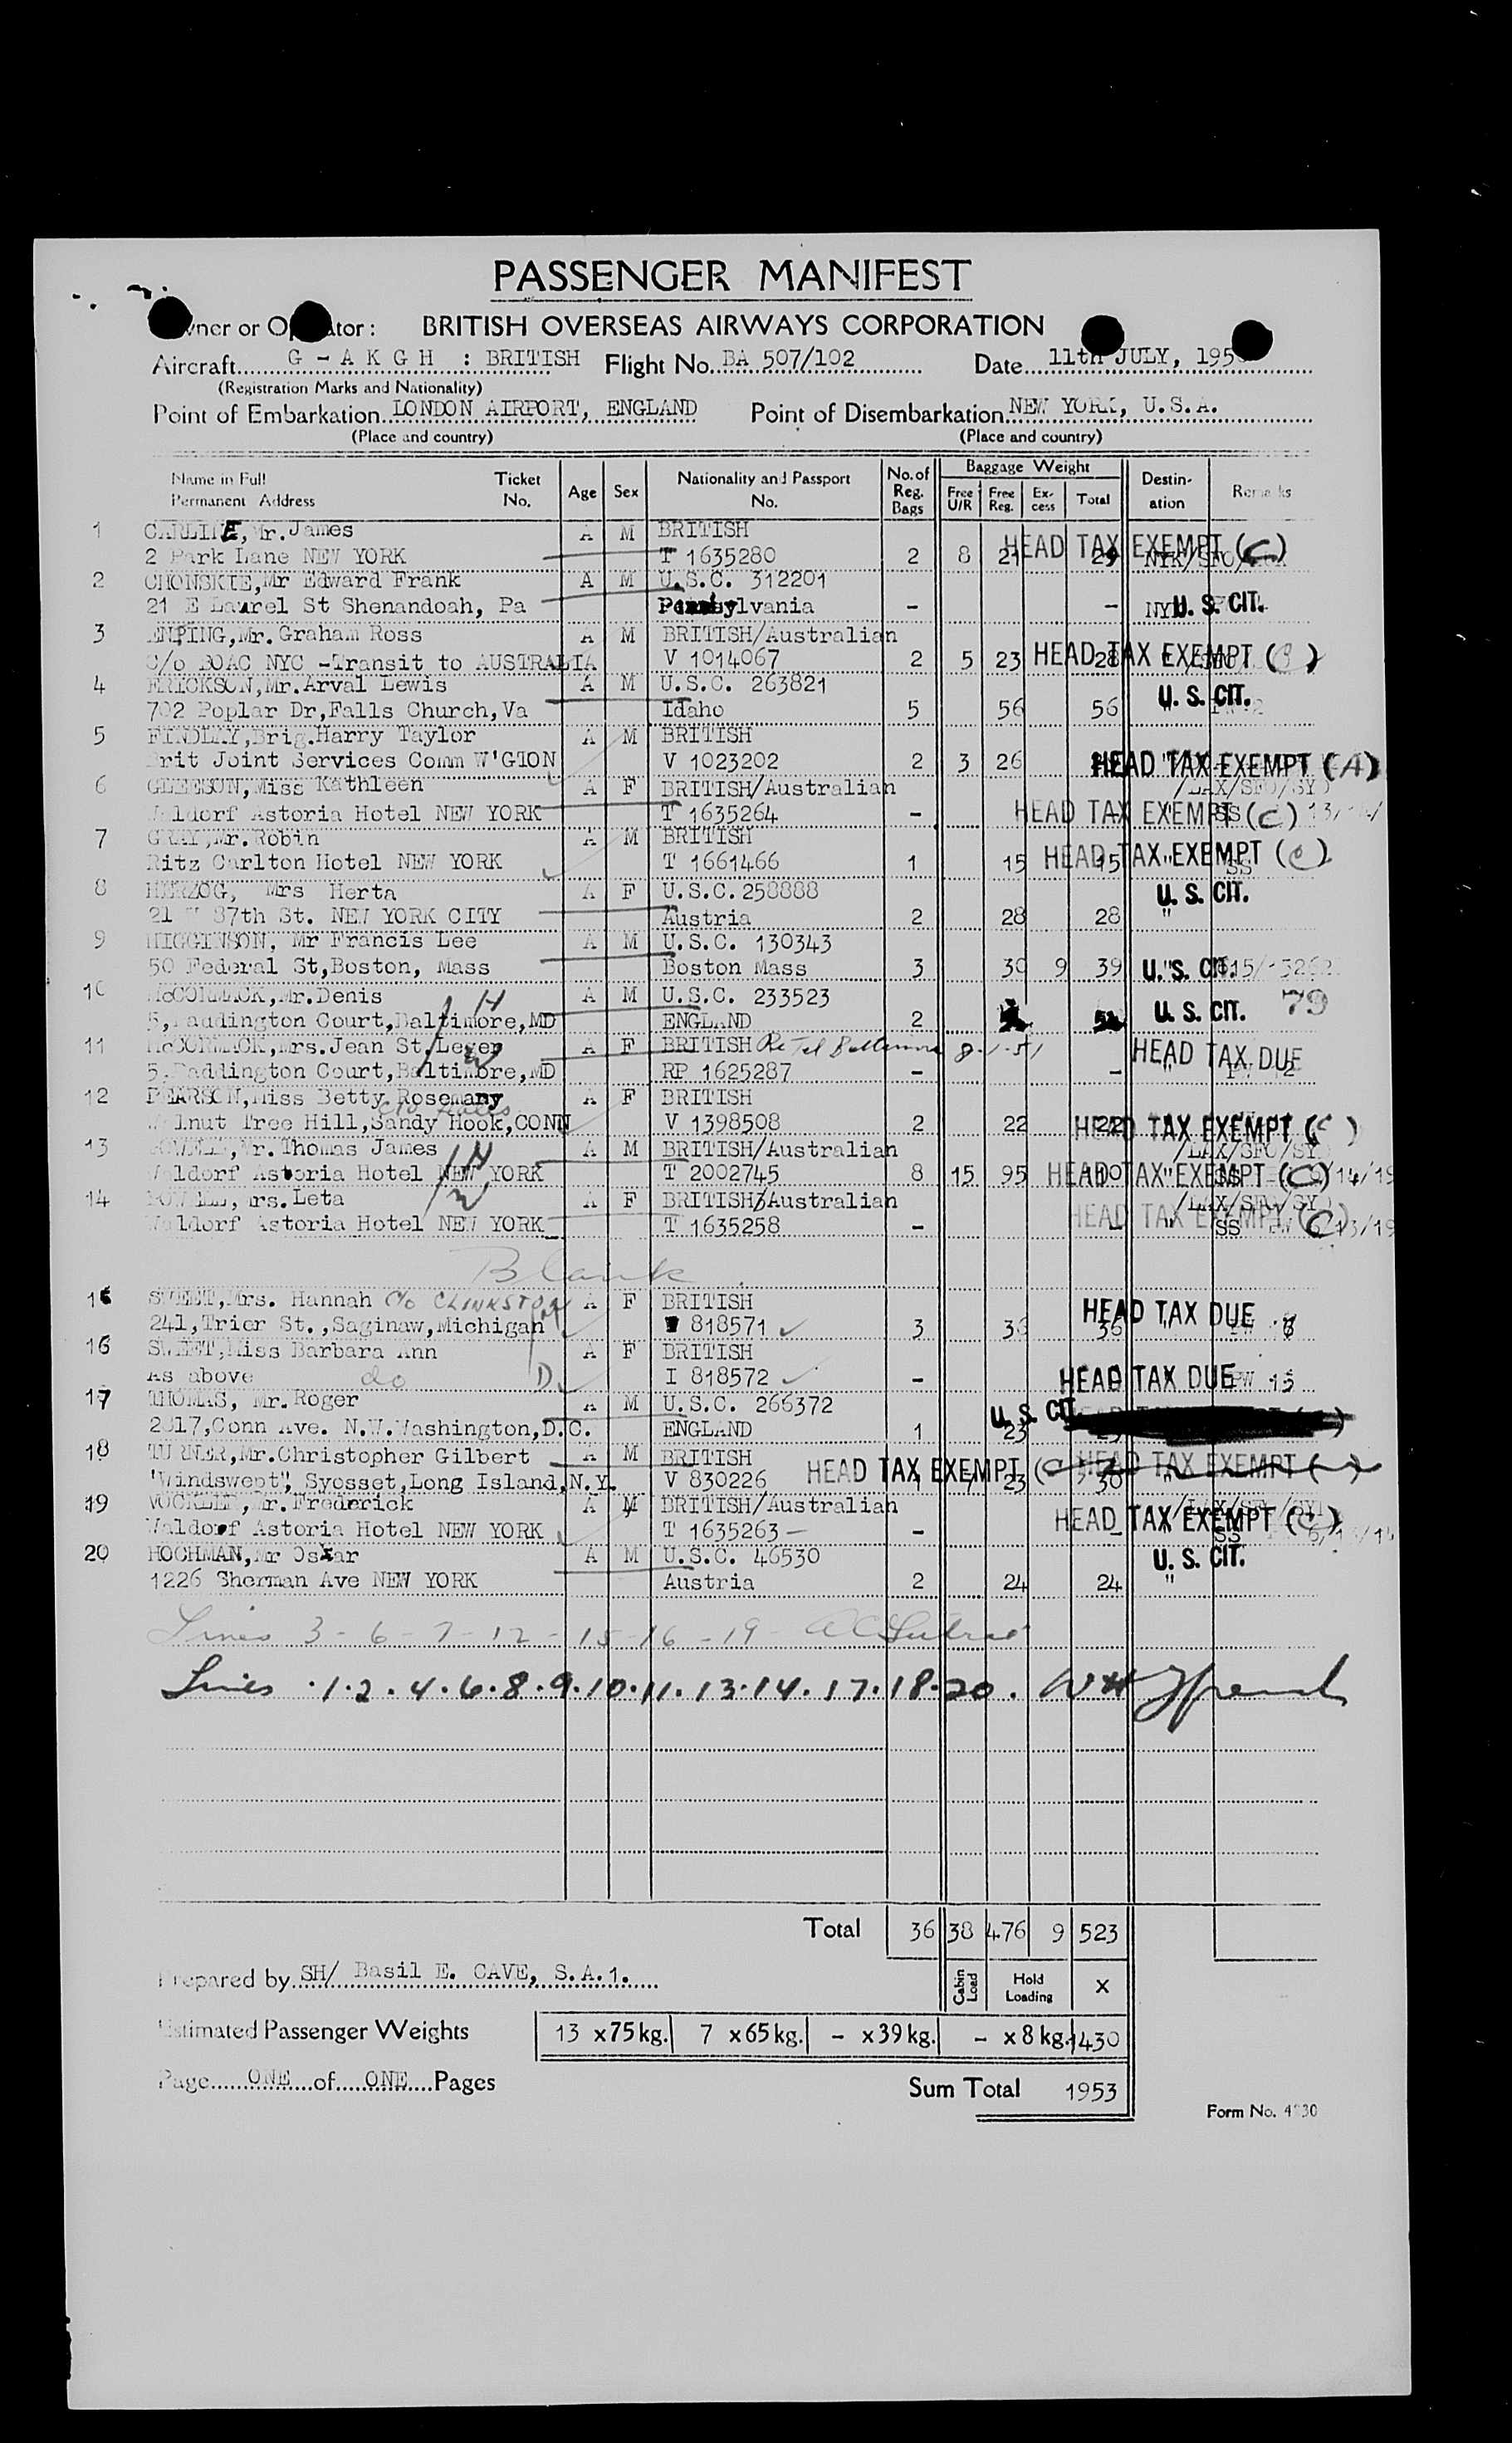 PASSENGER MANIFEST
BRITISH OVERSEAS AIRWAYS CORPORATION
Aircraft G - A K G H : BRITISH Flight No. BA 507/102 Date 11th JULY, 195
(Registration Marks and Nationality)
Point of Embarkation LONDON AIRPORT, ENGLAND Point of Disembarkation NEW YORK, U.S.A.
(Place and country) (Place and country)
Name in Full Ticket Age Sex Nationality and Passport No. of Baggage Weight Destin- Remarks
Permanent Address No. No. Reg. Bags Free U/R Free Reg. Ex-cess Total ation
1 Mr. James A M BRITISH
2 Park Lane NEW YORK T 1635280 2 8 21 29 HEAD TAX EXEMPT (C)
2 CHONSKIE, Mr Edward Frank A M U.S.C. 312201
21 E Laurel St Shenandoah, Pa Pennsylvania - - U. S. CIT.
3 Mr. Graham Ross A M BRITISH/Australian
C/o BOAC NYC -Transit to AUSTRALIA V 1014067 2 5 23 28 HEAD TAX EXEMPT
4 ERICKSON, Mr. Arval Lewis A M U.S.C. 263821
702 Poplar Dr, Falls Church, Va Idaho 5 56 56 U. S. CIT.
5 FINDLAY, Brig. Harry Taylor A M BRITISH
Brit Joint Services Comm W'GTON V 1023202 2 3 26 HEAD TAX EXEMPT (A)
6 GLEESON, Miss Kathleen A F BRITISH/Australian /LAX/SFO/SYD
Waldorf Astoria Hotel NEW YORK T 1635264 - HEAD TAX EXEMPT (C)
7 GRAY, Mr. Robin A M BRITISH
Ritz Carlton Hotel NEW YORK T 1661466 1 15 15 HEAD TAX EXEMPT (C) SS
8 HERZOG, Mrs Herta A F U.S.C. 258888
21 87th St. NEW YORK CITY Austria 2 28 28 " U. S. CIT.
9 HIGGINSON, Mr Francis Lee A M U.S.C. 130343
50 Federal St, Boston, Mass Boston Mass 3 30 9 39 U. S. CIT.
10 McCORMACK, Mr. Denis A M U.S.C. 233523
5, Paddington Court, Baltimore, MD H ENGLAND 2 U. S. CIT. 79
11 McCORMACK, Mrs. Jean St. Leger A F BRITISH Re Tel Baltimore 8-1-51
5, Paddington Court, Baltimore, MD W RP 1625287 - - HEAD TAX DUE
12 PEARSON, Miss Betty Rosemary A F BRITISH
Walnut Tree Hill, Sandy Hook, CONN V 1398508 2 22 22 HEAD TAX EXEMPT
13 POWELL, Mr. Thomas James H A M BRITISH/Australian /LAX/SFO/SYD
Waldorf Astoria Hotel NEW YORK T 2002745 8 15 95 HEAD TAX EXEMPT (C)
14 POWELL, Mrs. Leta W A F BRITISH/Australian /LAX/SFO/SYD
Waldorf Astoria Hotel NEW YORK T 1635258 - HEAD TAX EXEMPT (C) SS
Blank
15 SWEET, Mrs. Hannah c/o CLINKSTON A F BRITISH
241, Trier St., Saginaw, Michigan M 818571 3 36 36 HEAD TAX DUE
16 SWEET, Miss Barbara Ann A F BRITISH
As above do D I 818572 - HEAD TAX DUE
17 THOMAS, Mr. Roger A M U.S.C. 266372
2817, Conn Ave. N.W. Washington, D.C. ENGLAND 1 23 U. S. CIT.
18 TURNER, Mr. Christopher Gilbert A M BRITISH
"Windswept", Syosset, Long Island, N.Y. V 830226 1 7 23 30 HEAD TAX EXEMPT HEAD TAX EXEMPT
19 Mr. Frederick A M BRITISH/Australian
Waldorf Astoria Hotel NEW YORK T 1635263 - - HEAD TAX EXEMPT (C) SS
20 HOCHMAN, Mr Oskar A M U.S.C. 46530
1226 Sherman Ave NEW YORK Austria 2 24 24 " U. S. CIT.
Lines 3 - 6 - 7 - 12 - 15 - 16 - 19 -
Lines . 1 . 2 . 4 . 6 . 8 . 9 . 10 . 11 . 13 . 14 . 17 . 18 . 20 .
Total 36 38 476 9 523
Prepared by SH/ Basil E. CAVE, S.A.1. Cabin Load Hold Loading X
Estimated Passenger Weights 13 x75kg. 7 x65kg. - x39kg. - x8kg. 1430
Page ONE of ONE Pages Sum Total 1953
Form No.